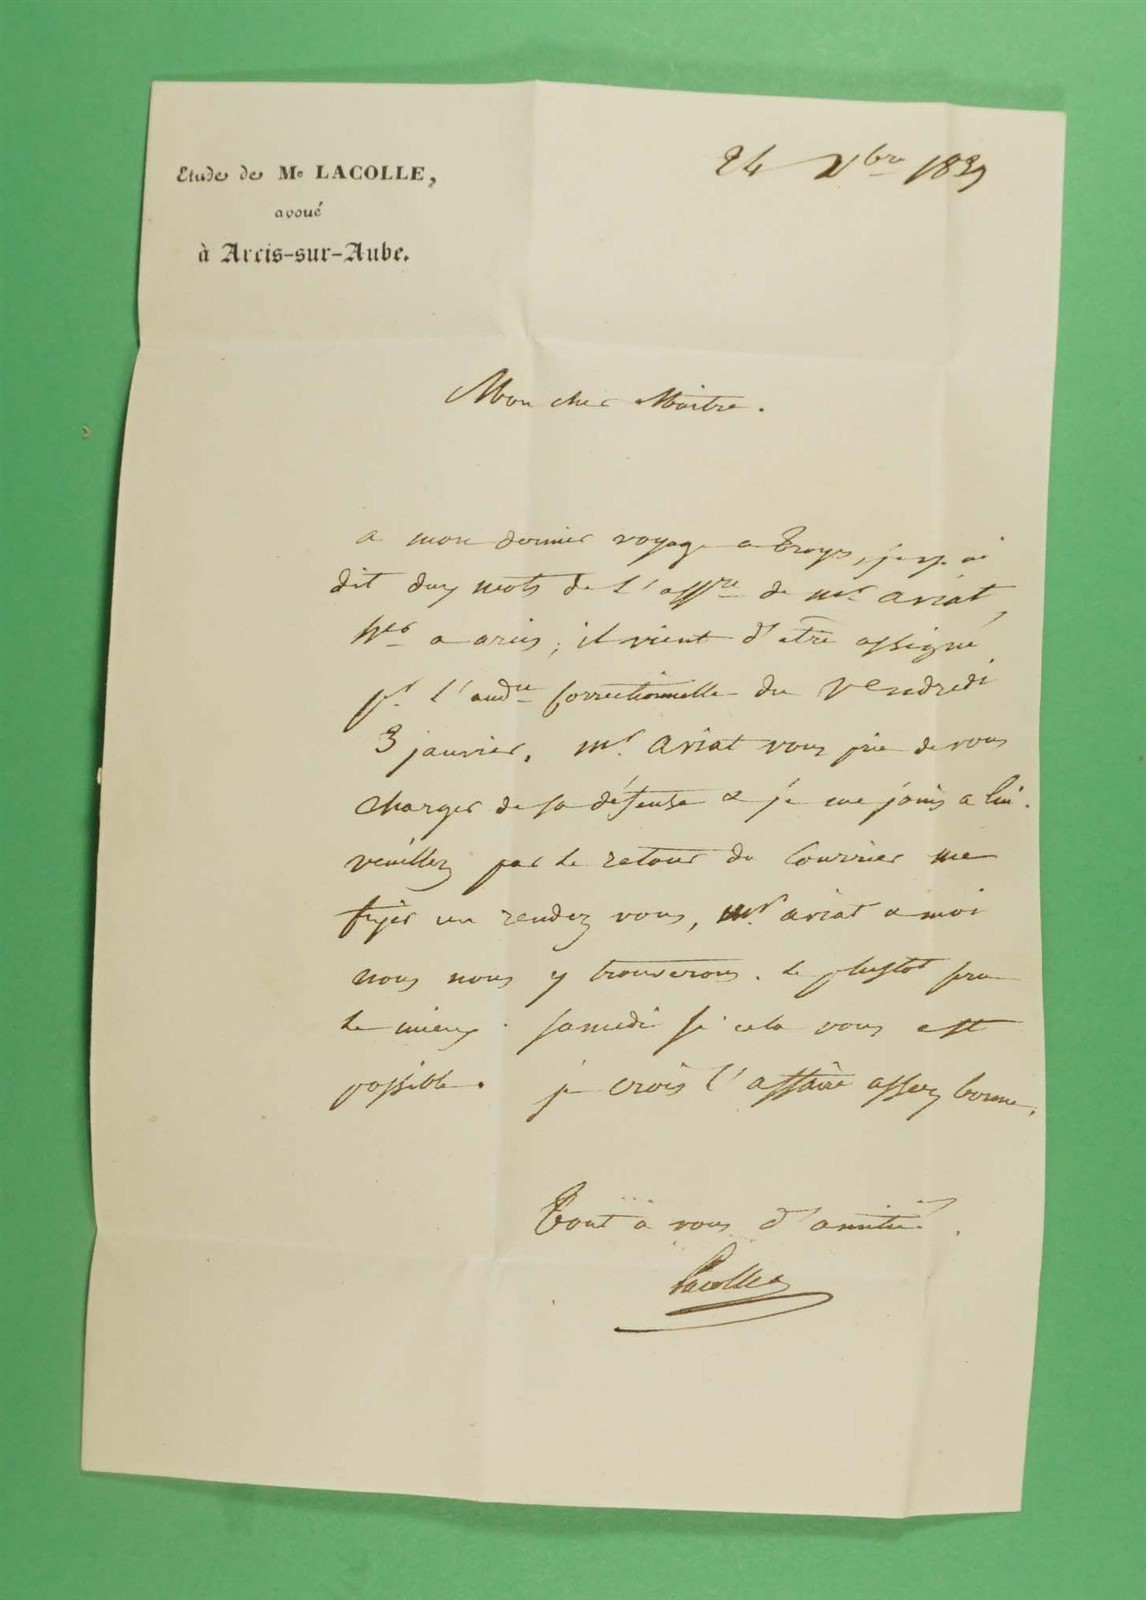 Etude de Me LACOLLE,
avoué
à Arcis-sur-Aube.
24 Xbre 1839
Mon cher Maitre.
a mon dernier voyage a Troyes, je v. ai
dit deux mots de l'affre de mr aviat,
a arcis ; il vient d'etre assigné
pr. l'audce correctionnelle du Vendredi
3 janvier. mr. Aviat vous prie de vous
charger de sa défense & je me joins a lui.
veuillez par le retour du Courrier me
fixer un rendez vous, mr. aviat & moi
nous nous y trouverons. le plustot sera
le mieux. samedi si cela vous est
possible. je crois l'affaire assez bonne.
Tout a vous d'amitié.
Lacolle